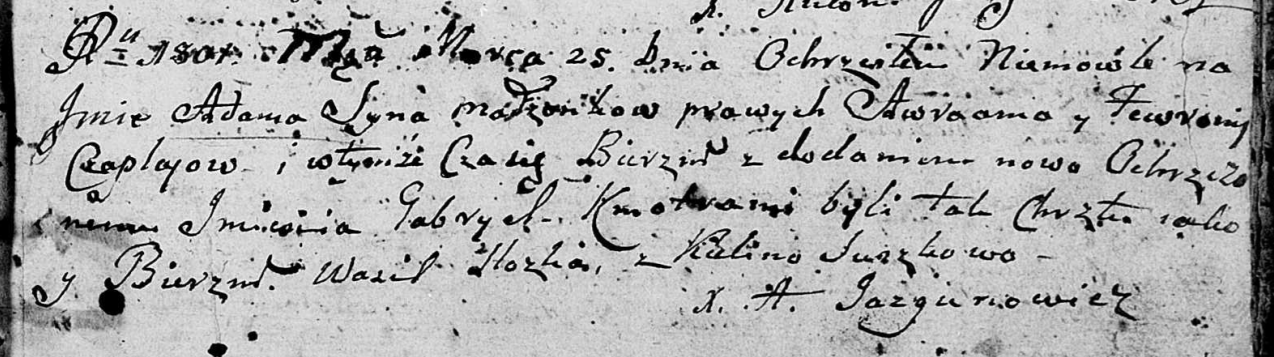 X. Anton
Ru 1801. Msca Marca 25. Dnia Ochrzciłem Niemowle na
Jmie Adama Syna małżonkow prawych Awraama y Fewronij
Czaplajow i wtymże Czasie Bierzm z dodaniem nowo Ochrzczo
nemu Jmienia Gabryel. Kmotrami byli tak Chrztu iako
y Bierzm. Wasil Hozka, z Kulino Suszkowo
x. A. Jazgunowicz